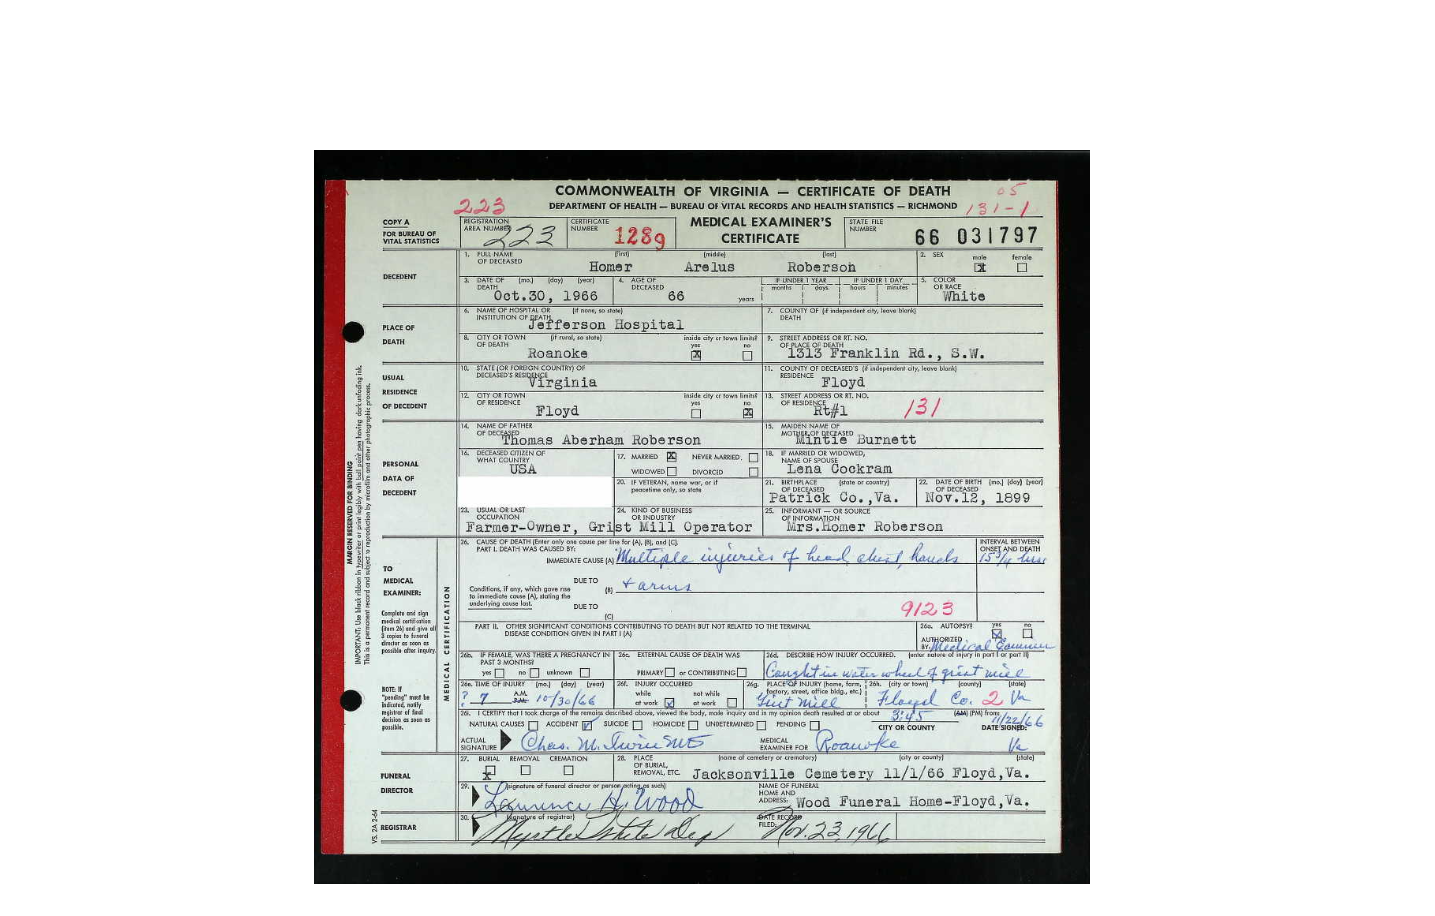 COMMONWEALTH OF VIRGINIA — CERTIFICATE OF DEATH
05
223 DEPARTMENT OF HEALTH — BUREAU OF VITAL RECORDS AND HEALTH STATISTICS — RICHMOND 131-1
COPY A
FOR BUREAU OF
VITAL STATISTICS
REGISTRATION AREA NUMBER 223
CERTIFICATE NUMBER 1289
MEDICAL EXAMINER'S
CERTIFICATE
STATE FILE NUMBER 66 031797
DECEDENT
1. FULL NAME OF DECEASED (first) (middle) (last)
Homer Arelus Roberson
2. SEX male X female
3. DATE OF DEATH (mo.) (day) (year)
Oct.30, 1966
4. AGE OF DECEASED 66 years
IF UNDER 1 YEAR months days
IF UNDER 1 DAY hours minutes
5. COLOR OR RACE White
PLACE OF
DEATH
6. NAME OF HOSPITAL OR INSTITUTION OF DEATH (if none, so state)
Jefferson Hospital
7. COUNTY OF DEATH (if independent city, leave blank)
8. CITY OR TOWN OF DEATH (if rural, so state)
Roanoke
inside city or town limits? yes X no
9. STREET ADDRESS OR RT. NO. OF PLACE OF DEATH
1313 Franklin Rd., S.W.
USUAL
RESIDENCE
OF DECEDENT
10. STATE (OR FOREIGN COUNTRY) OF DECEASED'S RESIDENCE
Virginia
11. COUNTY OF DECEASED'S RESIDENCE (if independent city, leave blank)
Floyd
12. CITY OR TOWN OF RESIDENCE
Floyd
inside city or town limits? yes no X
13. STREET ADDRESS OR RT. NO. OF RESIDENCE
Rt#1 131
PERSONAL
DATA OF
DECEDENT
14. NAME OF FATHER OF DECEASED
Thomas Aberham Roberson
15. MAIDEN NAME OF MOTHER OF DECEASED
Mintie Burnett
16. DECEASED CITIZEN OF WHAT COUNTRY
USA
17. MARRIED X NEVER MARRIED
WIDOWED DIVORCED
18. IF MARRIED OR WIDOWED, NAME OF SPOUSE
Lena Cockram
20. IF VETERAN, name war, or if peacetime only, so state
21. BIRTHPLACE OF DECEASED (state or country)
Patrick Co.,Va.
22. DATE OF BIRTH OF DECEASED (mo.) (day) (year)
Nov.12, 1899
23. USUAL OR LAST OCCUPATION
24. KIND OF BUSINESS OR INDUSTRY
Farmer-Owner, Grist Mill Operator
25. INFORMANT — OR SOURCE OF INFORMATION
Mrs.Homer Roberson
MARGIN RESERVED FOR BINDING
TO
MEDICAL
EXAMINER:
Complete and sign
medical certification
(item 26) and give all
3 copies to funeral
director as soon as
possible after inquiry.
NOTE: If
"pending" must be
indicated, notify
registrar of final
decision as soon as
possible.
MEDICAL CERTIFICATION
26. CAUSE OF DEATH (Enter only one cause per line for (A), (B), and (C).
PART I. DEATH WAS CAUSED BY:
IMMEDIATE CAUSE (A) Multiple injuries of head, chest, hands
INTERVAL BETWEEN ONSET AND DEATH
DUE TO
(B) + arms
Conditions, if any, which gave rise
to immediate cause (A), stating the
underlying cause last.
DUE TO
(C)
9123
PART II. OTHER SIGNIFICANT CONDITIONS CONTRIBUTING TO DEATH BUT NOT RELATED TO THE TERMINAL
DISEASE CONDITION GIVEN IN PART I (A)
26a. AUTOPSY? yes X no
AUTHORIZED BY: Medical Examiner
26b. IF FEMALE, WAS THERE A PREGNANCY IN PAST 3 MONTHS?
yes no unknown
26c. EXTERNAL CAUSE OF DEATH WAS
PRIMARY or CONTRIBUTING
26d. DESCRIBE HOW INJURY OCCURRED. (enter nature of injury in part I or part II)
Caught in water wheel of grist mill
26e. TIME OF INJURY (mo.) (day) (year)
? 7 A.M. P.M. 10/30/66
26f. INJURY OCCURRED
while at work X not while at work
26g. PLACE OF INJURY (home, farm, factory, street, office bldg., etc.)
Grist Mill
26h. (city or town) (county) (state)
Floyd Co. 2 Va
26i. I CERTIFY that I took charge of the remains described above, viewed the body, made inquiry and in my opinion death resulted at or about 3:45 (AM) (PM) from:
NATURAL CAUSES ACCIDENT X SUICIDE HOMICIDE UNDETERMINED PENDING
CITY OR COUNTY
DATE SIGNED: 11/22/66
ACTUAL SIGNATURE Chas. M. Irvin MD
MEDICAL EXAMINER FOR Roanoke Va
FUNERAL
DIRECTOR
27. BURIAL X REMOVAL CREMATION
28. PLACE OF BURIAL, REMOVAL, ETC. (name of cemetery or crematory) (city or county) (state)
Jacksonville Cemetery 11/1/66 Floyd,Va.
29. (signature of funeral director or person acting as such)
Lawrence H. Wood
NAME OF FUNERAL HOME AND ADDRESS: Wood Funeral Home-Floyd,Va.
REGISTRAR
30. (signature of registrar)
Myrtle White Dep
DATE RECORD FILED: Nov. 23, 1966
VS. 2A 2-64